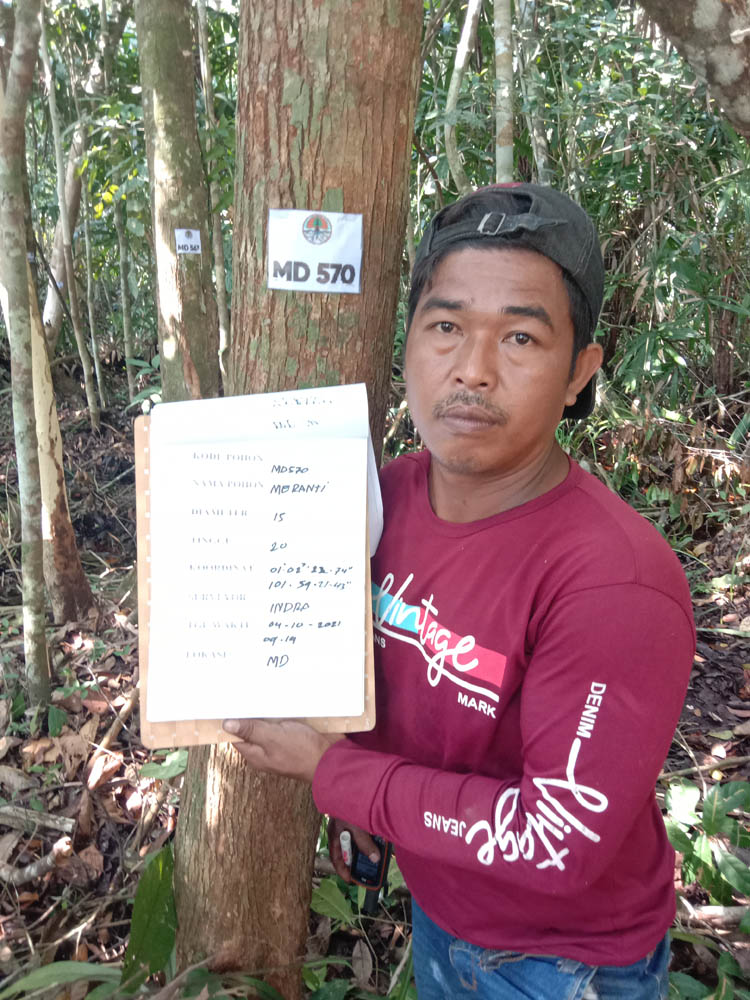 MD 570
MD 567
KODE POHON
MD570
NAMA POHON MERANTI
DIAMETER 15
TINGGI 20
KOORDINAT
SURVEYOR INDRA
TGL/WAKTU 04-10-2021
09.19
LOKASI MD
Vintage
JEANS
MARK
DENIM
Vintage
JEANS